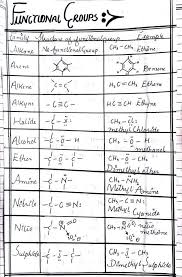 Functional Groups:
Family Structure of functional group Example
Alkane No functional group CH₃-CH₃ Ethane
Arene Benzene
Alkene C=C H₂C=CH₂ Ethene
Alkyne -C≡C- HC≡CH Ethyne
Halide CH₃-Cl:
Methyl Chloride
Alcohol -C-O-H CH₃-O-H
methanol
Ether -C-O-C- CH₃-O-CH₃
Dimethyl ether
Amine -C-N- CH₃-N-H
Methyl Amine
Nitrile -C-C≡N: CH₃-C≡N:
Methyl Cyanide
Nitro CH₃-N nitro
methane
Sulphide -C-S-C- CH₃-S-CH₃
Dimethyl Sulphide